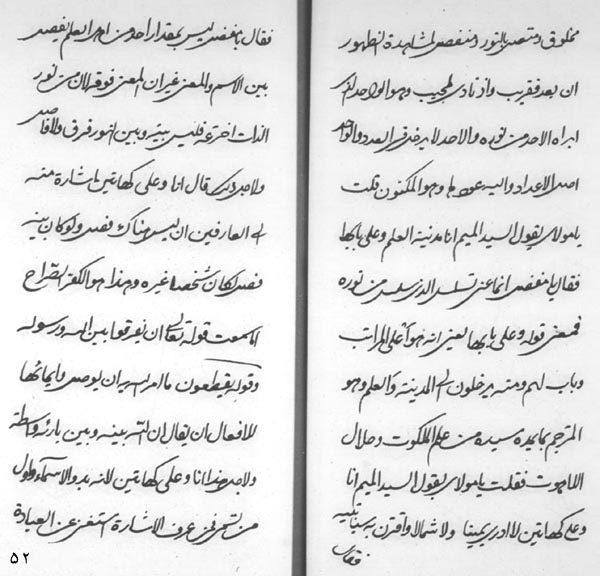 مخلوق ومتصل بالنور ومنفصل لمشاهدة الظهور
ان بعد فقريب واذ نادى لمجيب وهو الواحد الذي
ابراه الاحد من نوره والاحد لا يدخل في العدد والواحد
اصل الاعداد واليه عودها وهو المكنون قلت
يا مولاي يقول السيد الميم انا مدينة العلم وعلي بابها
فقال يا مفضل انما عنى تسلسل الذي سلسل من نوره
فمعنى قوله وعلي بابها يعني انه هو اعلى المراتب
وباب لهم ومنه يدخلون الى المدينة والعلم وهو
المترجم بما يمده سيده من علم الملكوت وجلال
اللاهوت فقلت يا مولاي يقول السيد الميم انا
وعلي كهاتين لا ادري يمينا ولا شمالا واقرن به سبابتيه
فقال
فقال يا مفضل ليس بمقدار احد من اهل العلم يفصل
بين الاسم والمعنى غير ان المعنى فوقه لان من نور
الذات اخترعه فليس بينه وبين النور فرق ولا فاصل
ولاجل ذلك قال انا وعلي كهاتين اشارة منه
الى العارفين ان ليس هناك فصل ولو كان بينه
فصل لكان شخصا غيره وهذا هو الكفر الصراح
اما سمعت قوله تعالى ان يفرقوا بين الله ورسوله
وقوله يقطعون ما امر الله به ان يوصل وايمائها
للافعال ان يقال ان الله بينه وبين بارئه واسطة
ولاجل هذا انا وعلي كهاتين لانه بدو الاسماء واول
من تسمى فمن عرف الاشارة استغنى عن العبادة
٥٢